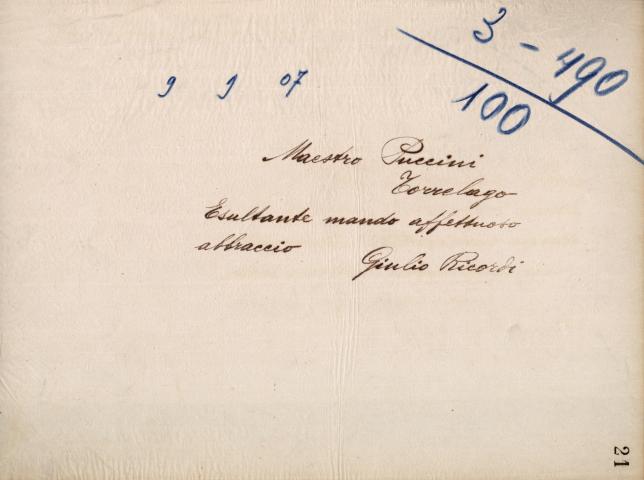 3 - 490
100
9 9 07
Maestro Puccini
Torrelago
Esultante mando affettuoso
abbraccio Giulio Ricordi
21